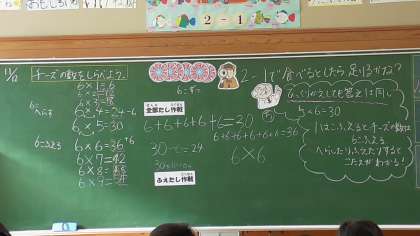 2-1
チーズの数をしらべよう。
6×1=6
6×2=12
6×3=18
6×4=24
6×5=30
6×6=36
6×7=42
6×8=48
6×9=54
6こふえる
全部たし作戦
6+6+6+6+6=30
6+6+6+6+6+6=36
30-6=24
6×6
ふえたし作戦
2-1で食べるとしたら足りるかな？
ひっくりかえしても答えは同じ
5×6=30
1はこふえるとチーズの数は
6こふえる
へらしたりふえたりすると
こたえがわかる！